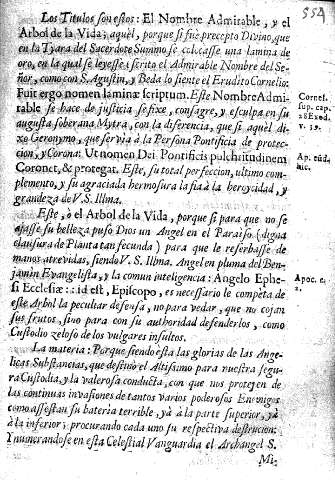 554
Los Titulos son estos: El Nombre Admirable, y el
Arbol de la Vida; aquèl, porque si fuè precepto Divino, que
en la Tyara del Sacerdote Summo se colocasse una lamina de
oro, en la qual se leyesse escrito el Admirable Nombre del Se-
ñor, como con S. Agustin, y Beda lo siente el Erudito Cornelio:
Fuit ergo nomen laminæ scriptum. Este Nombre Admi-
rable se hace de justicia se fixe, consagre, y esculpa en su
augusta soberana Mytra, con la diferencia, que si aquèl di-
xo Geronymo, que servìa à la Persona Pontificia de protec-
cion, y Corona: Ut nomen Dei Pontificis pulchritudinem
Coronet, & protegat. Este, su total perfeccion, ultimo com-
plemento, y su agraciada hermosura la fia à la heroycidad, y
grandeza de V. S. Illma.
Cornel.
sup. cap.
28 Exod.
v. 39.
Ap. eũd.
hic.
Este, ò el Arbol de la Vida, porque si para que no se
ajasse su belleza puso Dios un Angel en el Paraìso (digna
clausura de Planta tan fecunda) para que le reserbasse de
manos atrevidas, siendo V. S. Illma. Angel en pluma del Ben-
jamin Evangelista, y la comun inteligencia: Angelo Ephe-
si Ecclesiæ::: id est, Episcopo, es necessario le competa de
este Arbol la peculiar defensa, no para vedar, que no cojan
sus frutos, sino para con su authoridad defenderlos, como
Custodio zeloso de los vulgares insultos.
Apoc. c.
2.
La materia: Porque siendo esta las glorias de las Ange-
licas Substancias, que destinò el Altissimo para nuestra segu-
ra Custodia, y la valerosa conducta, con que nos protegen de
las continuas invasiones de tantos varios poderosos Enemigos
como assestan su bateria terrible, yà à la parte superior, yà
à la inferior; procurando cada uno su respectiva destruccion:
Y numerandose en esta Celestial Vanguardia el Archangel S.
Mi-